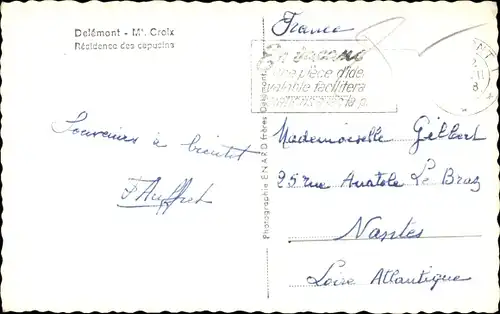 Delémont - Mt. Croix
Résidence des capucins
Souvenirs à bientôt
Photographie E.N.A.R.D. Frères Delémont
France
une pièce d'ide
valable facilitera
Mademoiselle Gilbert
25 rue Anatole Le Braz
Nantes
Loire Atlantique